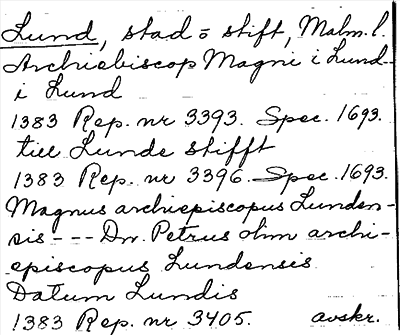 Lund, stad o stift, Malm. l.
Archiebiscop Magni i Lund
i Lund
1383 Rep. nr 3393. Spec. 1693.
till Lunde stifft
1383 Rep. nr 3396. Spec. 1693.
Magnus archiepiscopus Lunden-
sis --- Dn. Petrus olim archi-
episcopus Lundensis
Datum Lundis
1383 Rep. nr 3405. avskr.